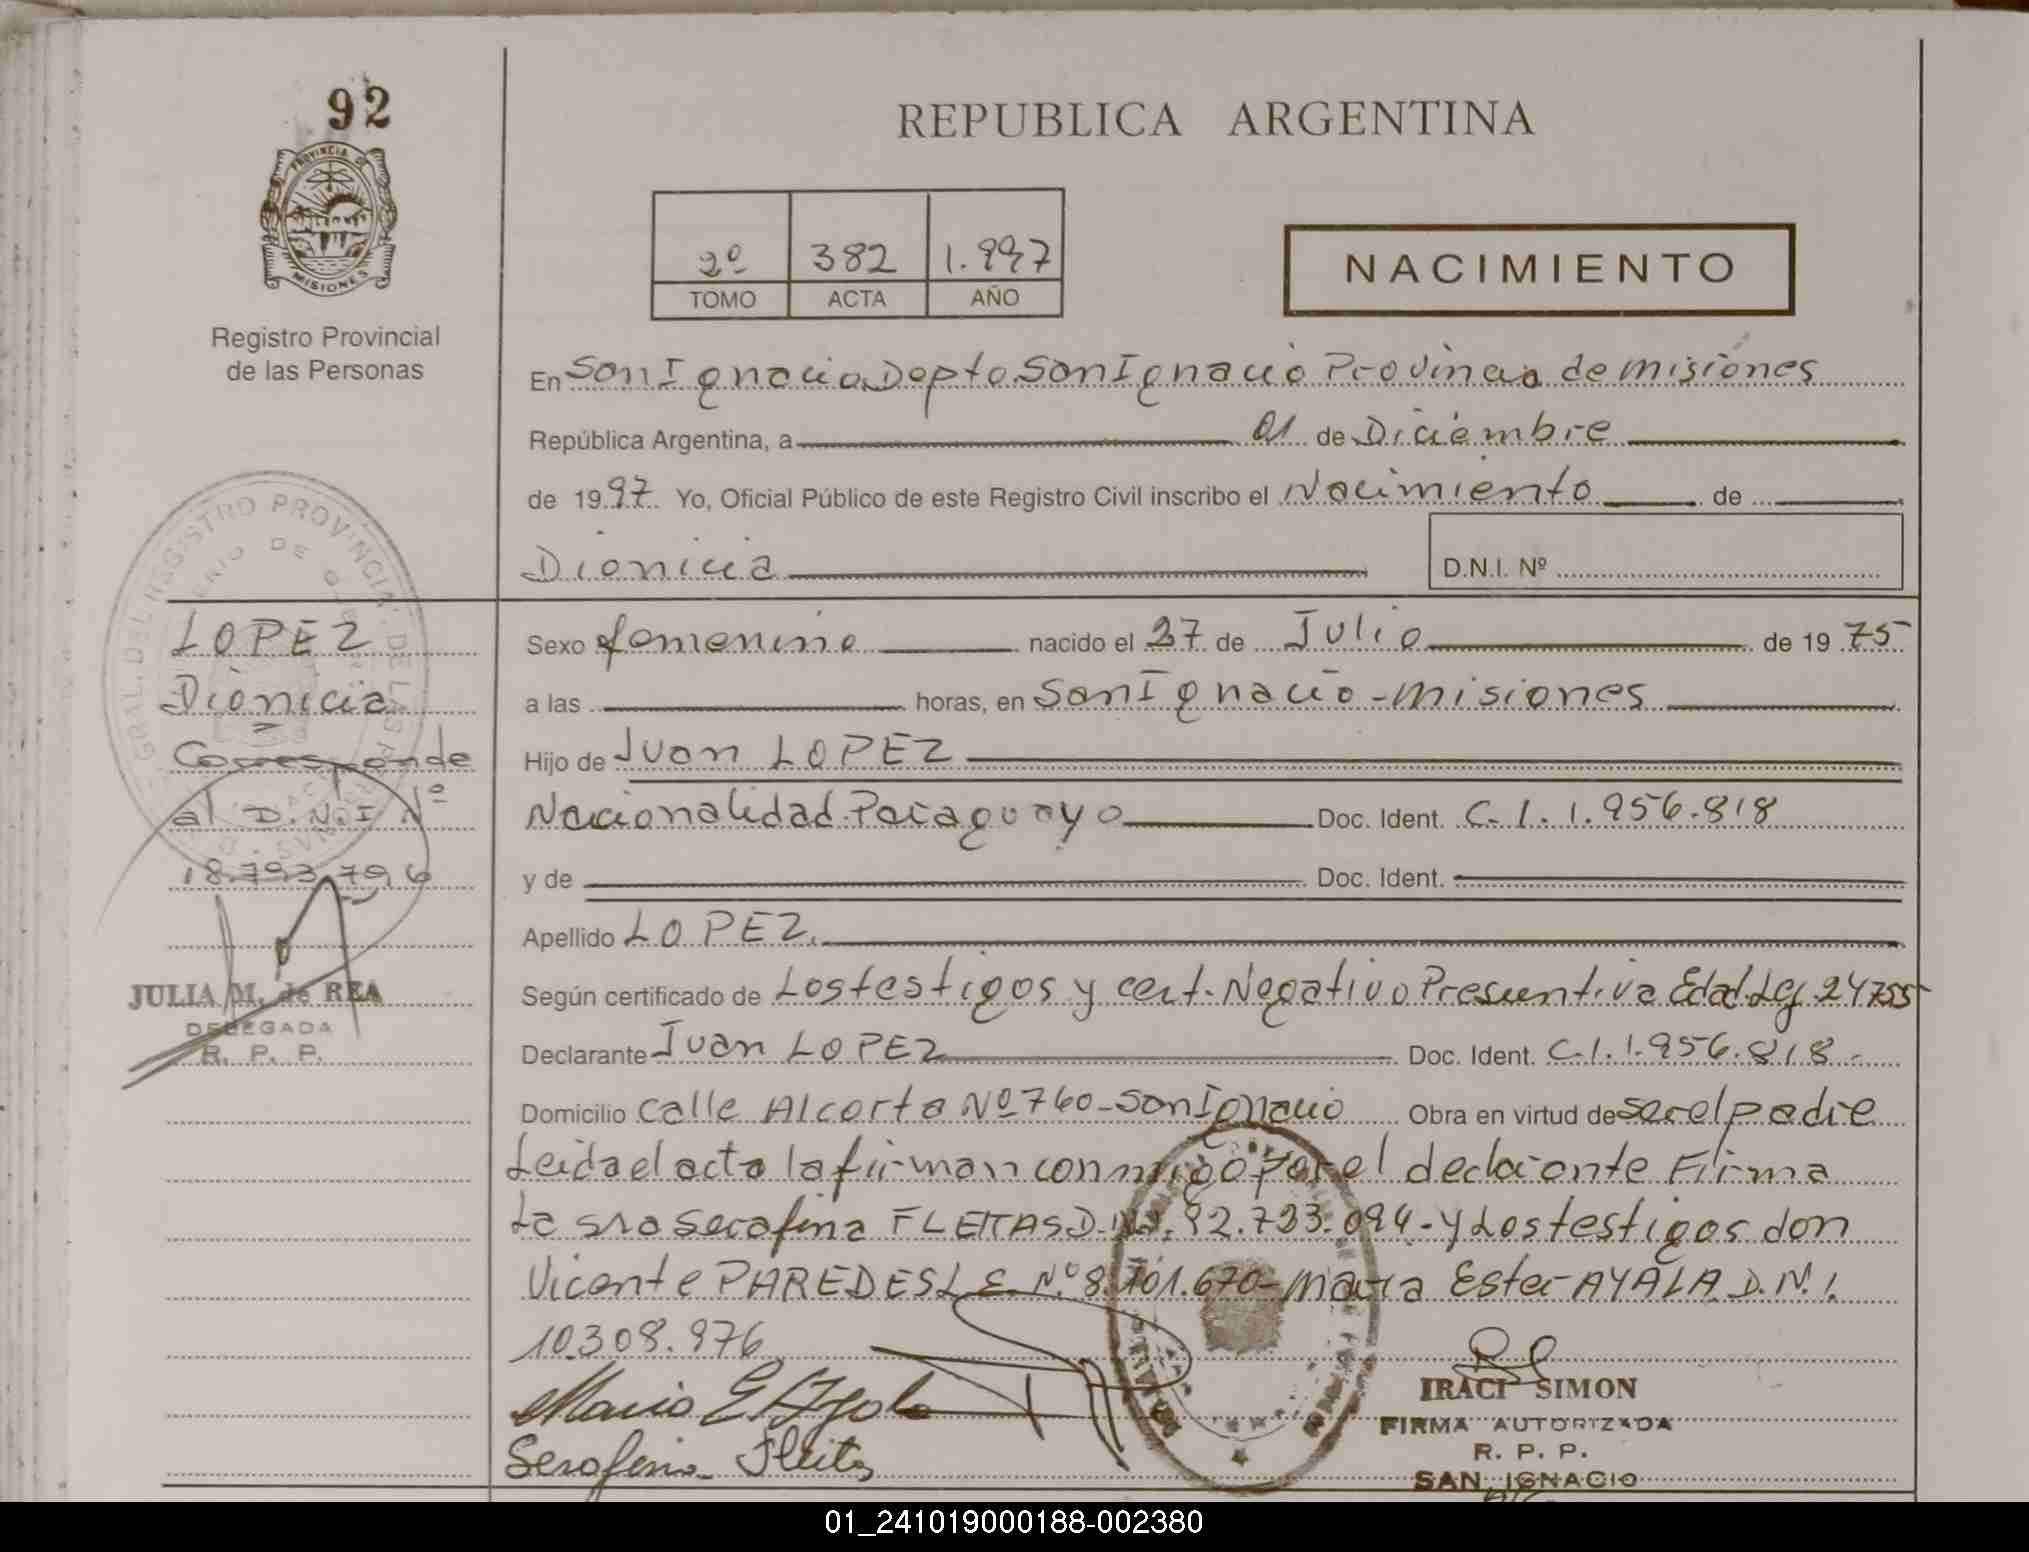 92
PROVINCIA DE
MISIONES
Registro Provincial
de las Personas
REPUBLICA ARGENTINA
2º 382 1.997
TOMO ACTA AÑO
NACIMIENTO
En San Ignacio Depto San Ignacio Provincia de Misiones
República Argentina, a 01 de Diciembre
de 1997 Yo, Oficial Público de este Registro Civil inscribo el Nacimiento de
Dionicia D.N.I. Nº
LOPEZ
Dionicia
Corresponde
al D.N.I Nº
18.793.796
JULIA M. de REA
DELEGADA
R. P. P.
Sexo femenino nacido el 27 de Julio de 1975
a las horas, en San Ignacio - Misiones
Hijo de Juan LOPEZ
Nacionalidad Paraguayo Doc. Ident. C.I. 1.956.818
y de Doc. Ident.
Apellido LOPEZ
Según certificado de Los testigos y cert. Negativo Presuntiva Edad Leg 24755
Declarante Juan LOPEZ Doc. Ident. C.I. 1.956.818
Domicilio Calle Alcorta Nº 760 - San Ignacio Obra en virtud de ser el padre
Leida el acta la firman conmigo por el declarante Firma
La sra Serafina FLEITAS D.N.I. 92.723.094 - y Los testigos don
Vicente PAREDES L.E. Nº 8.701.670 - Maria Ester AYALA D.N.I.
10.308.976
Maria E Ayala
Serafina Fleitas
IRACI SIMON
FIRMA AUTORIZADA
R. P. P.
SAN IGNACIO
01_241019000188-002380